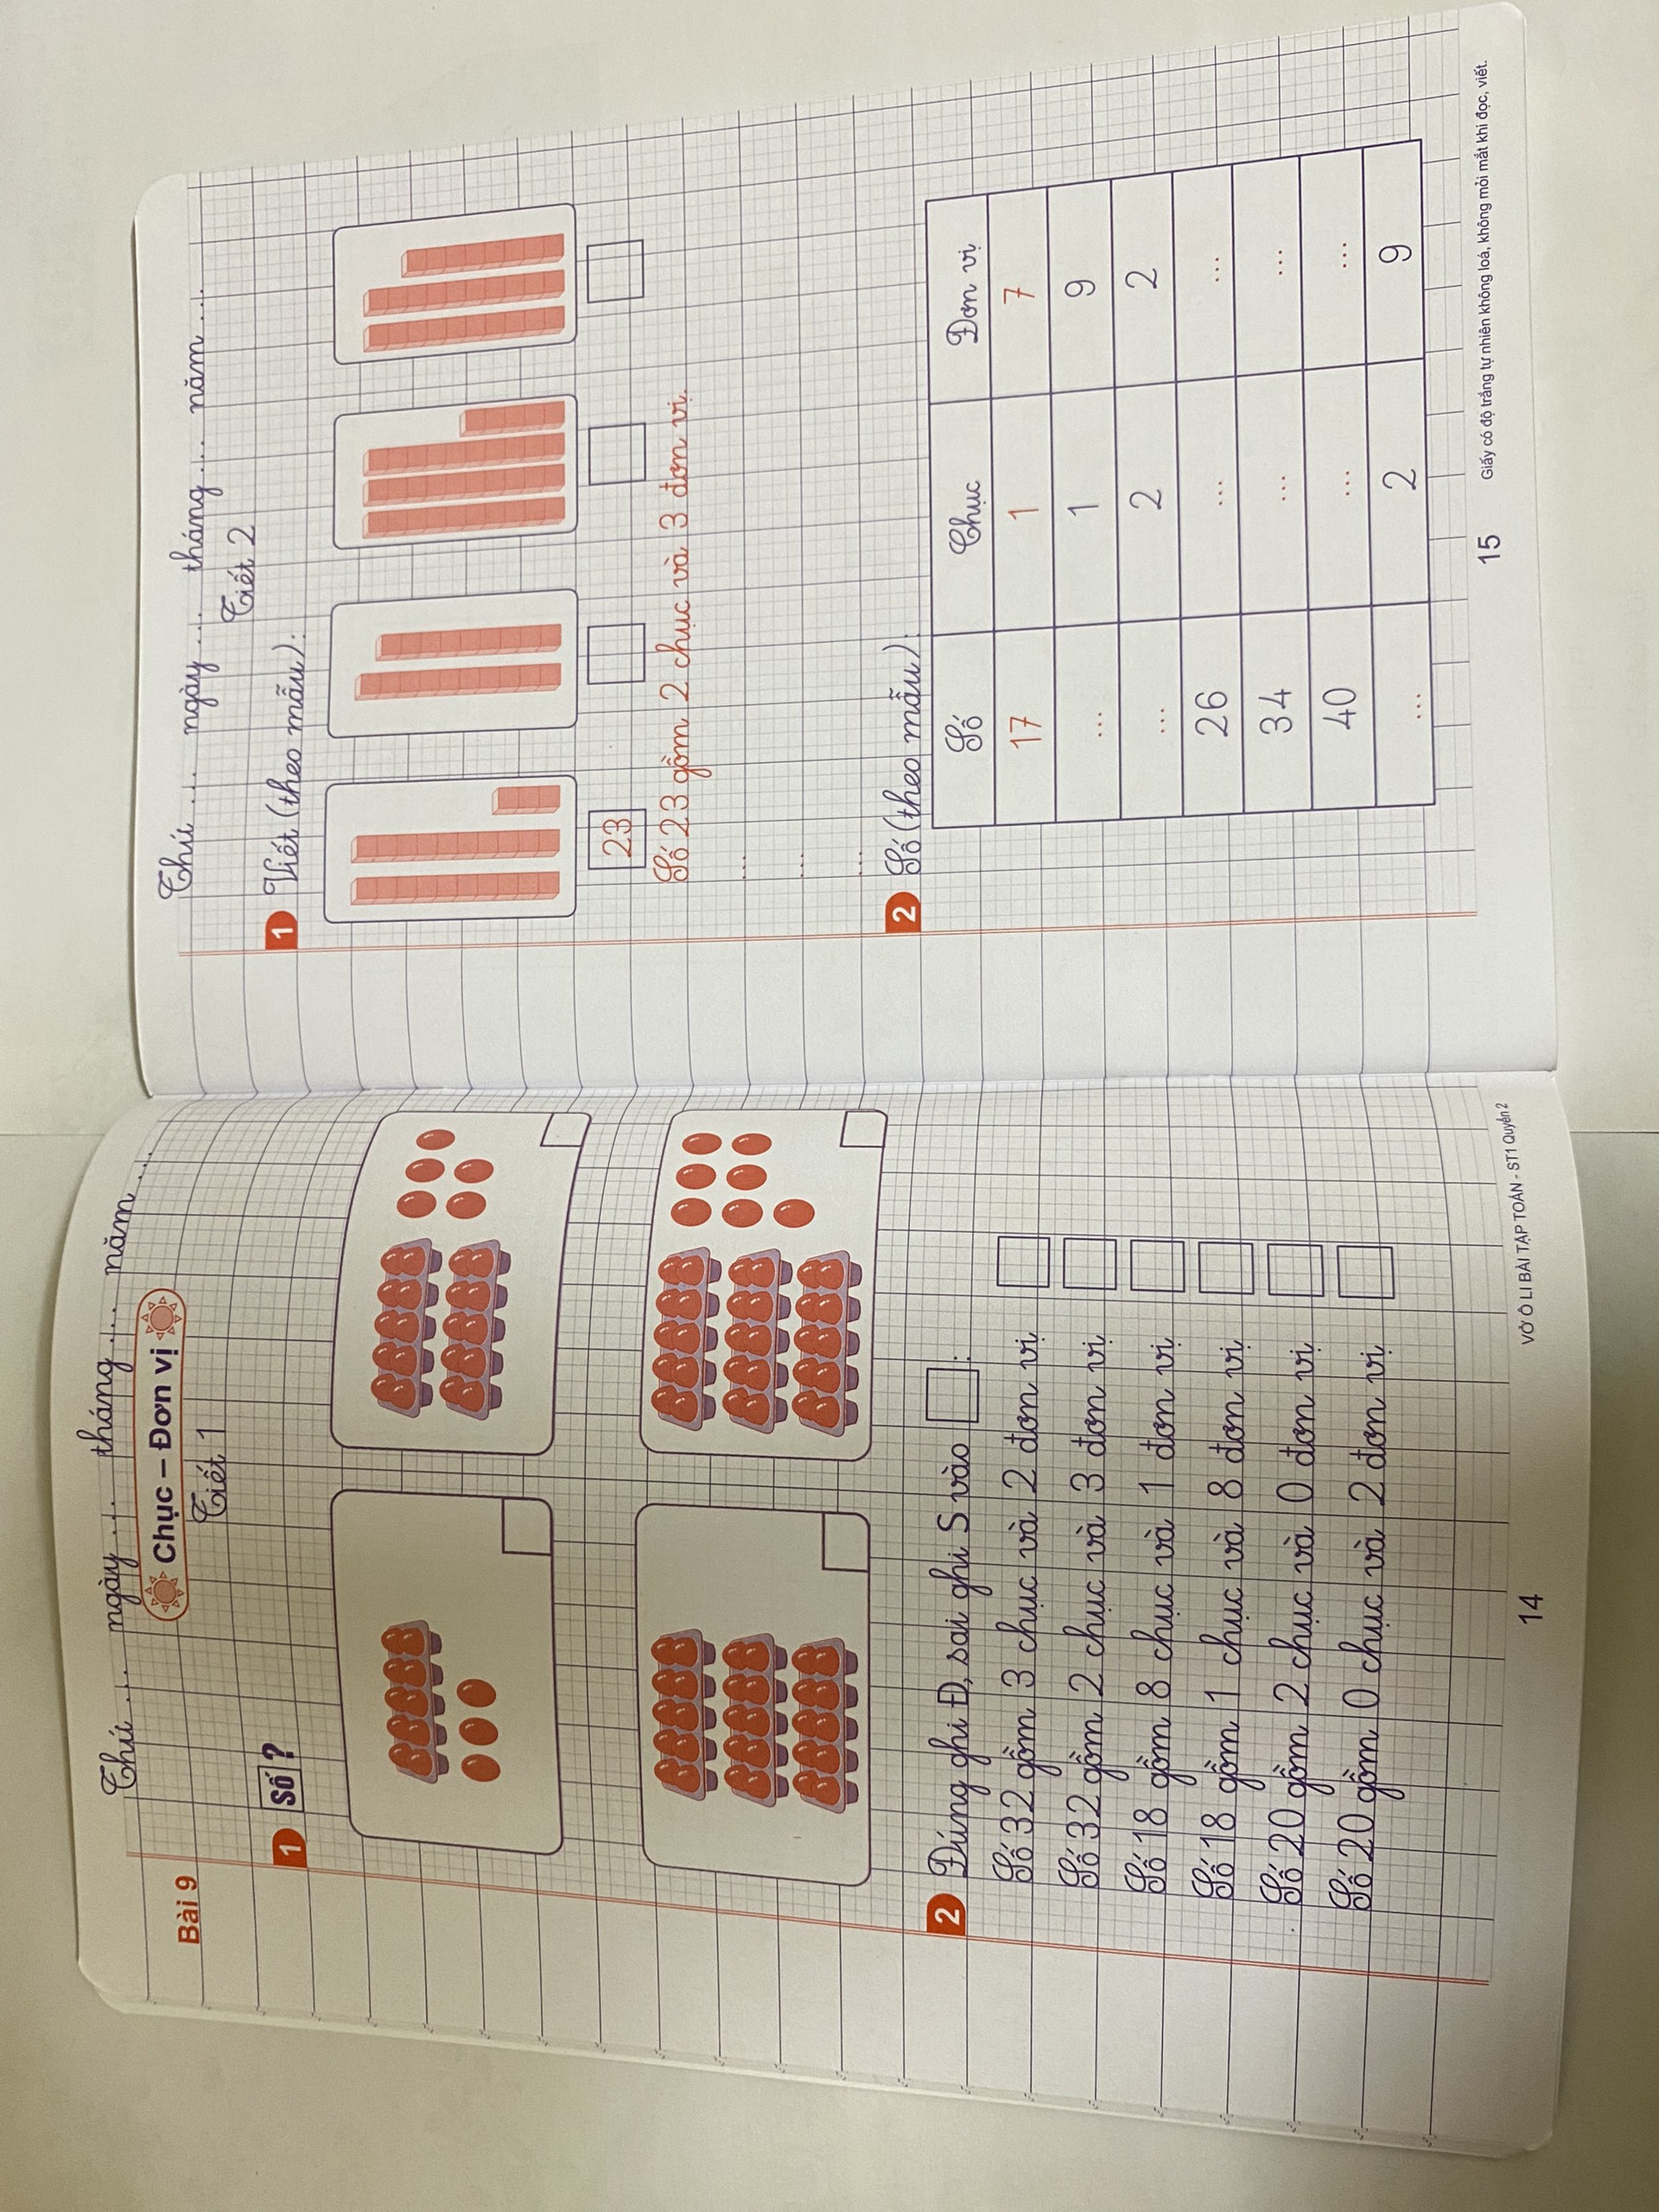 Thứ ... ngày ... tháng ... năm ...
Bài 9
Chục – Đơn vị
Tiết 1
1 Số ?
2 Đúng ghi Đ, sai ghi S vào :
Số 32 gồm 3 chục và 2 đơn vị
Số 32 gồm 2 chục và 3 đơn vị
Số 18 gồm 8 chục và 1 đơn vị
Số 18 gồm 1 chục và 8 đơn vị
Số 20 gồm 2 chục và 0 đơn vị
Số 20 gồm 0 chục và 2 đơn vị
14 VỞ Ô LI BÀI TẬP TOÁN - ST1 Quyển 2
Thứ ... ngày ... tháng ... năm ...
Tiết 2
1 Viết (theo mẫu):
23
Số 23 gồm 2 chục và 3 đơn vị.
...
...
...
2 Số (theo mẫu):
Số Chục Đơn vị
17 1 7
... 1 9
... 2 2
26 ... ...
34 ... ...
40 ... ...
... 2 9
15 Giấy có độ trắng tự nhiên không loá, không mỏi mắt khi đọc, viết.